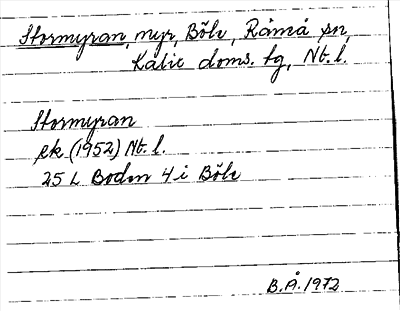 Stormyran, myr, Böle, Råneå sn,
Kalix doms. tg, Nb. l.
Stormyran
ek (1952) Nb. l.
25 L Boden 4 i Böle
B.Å. 1972